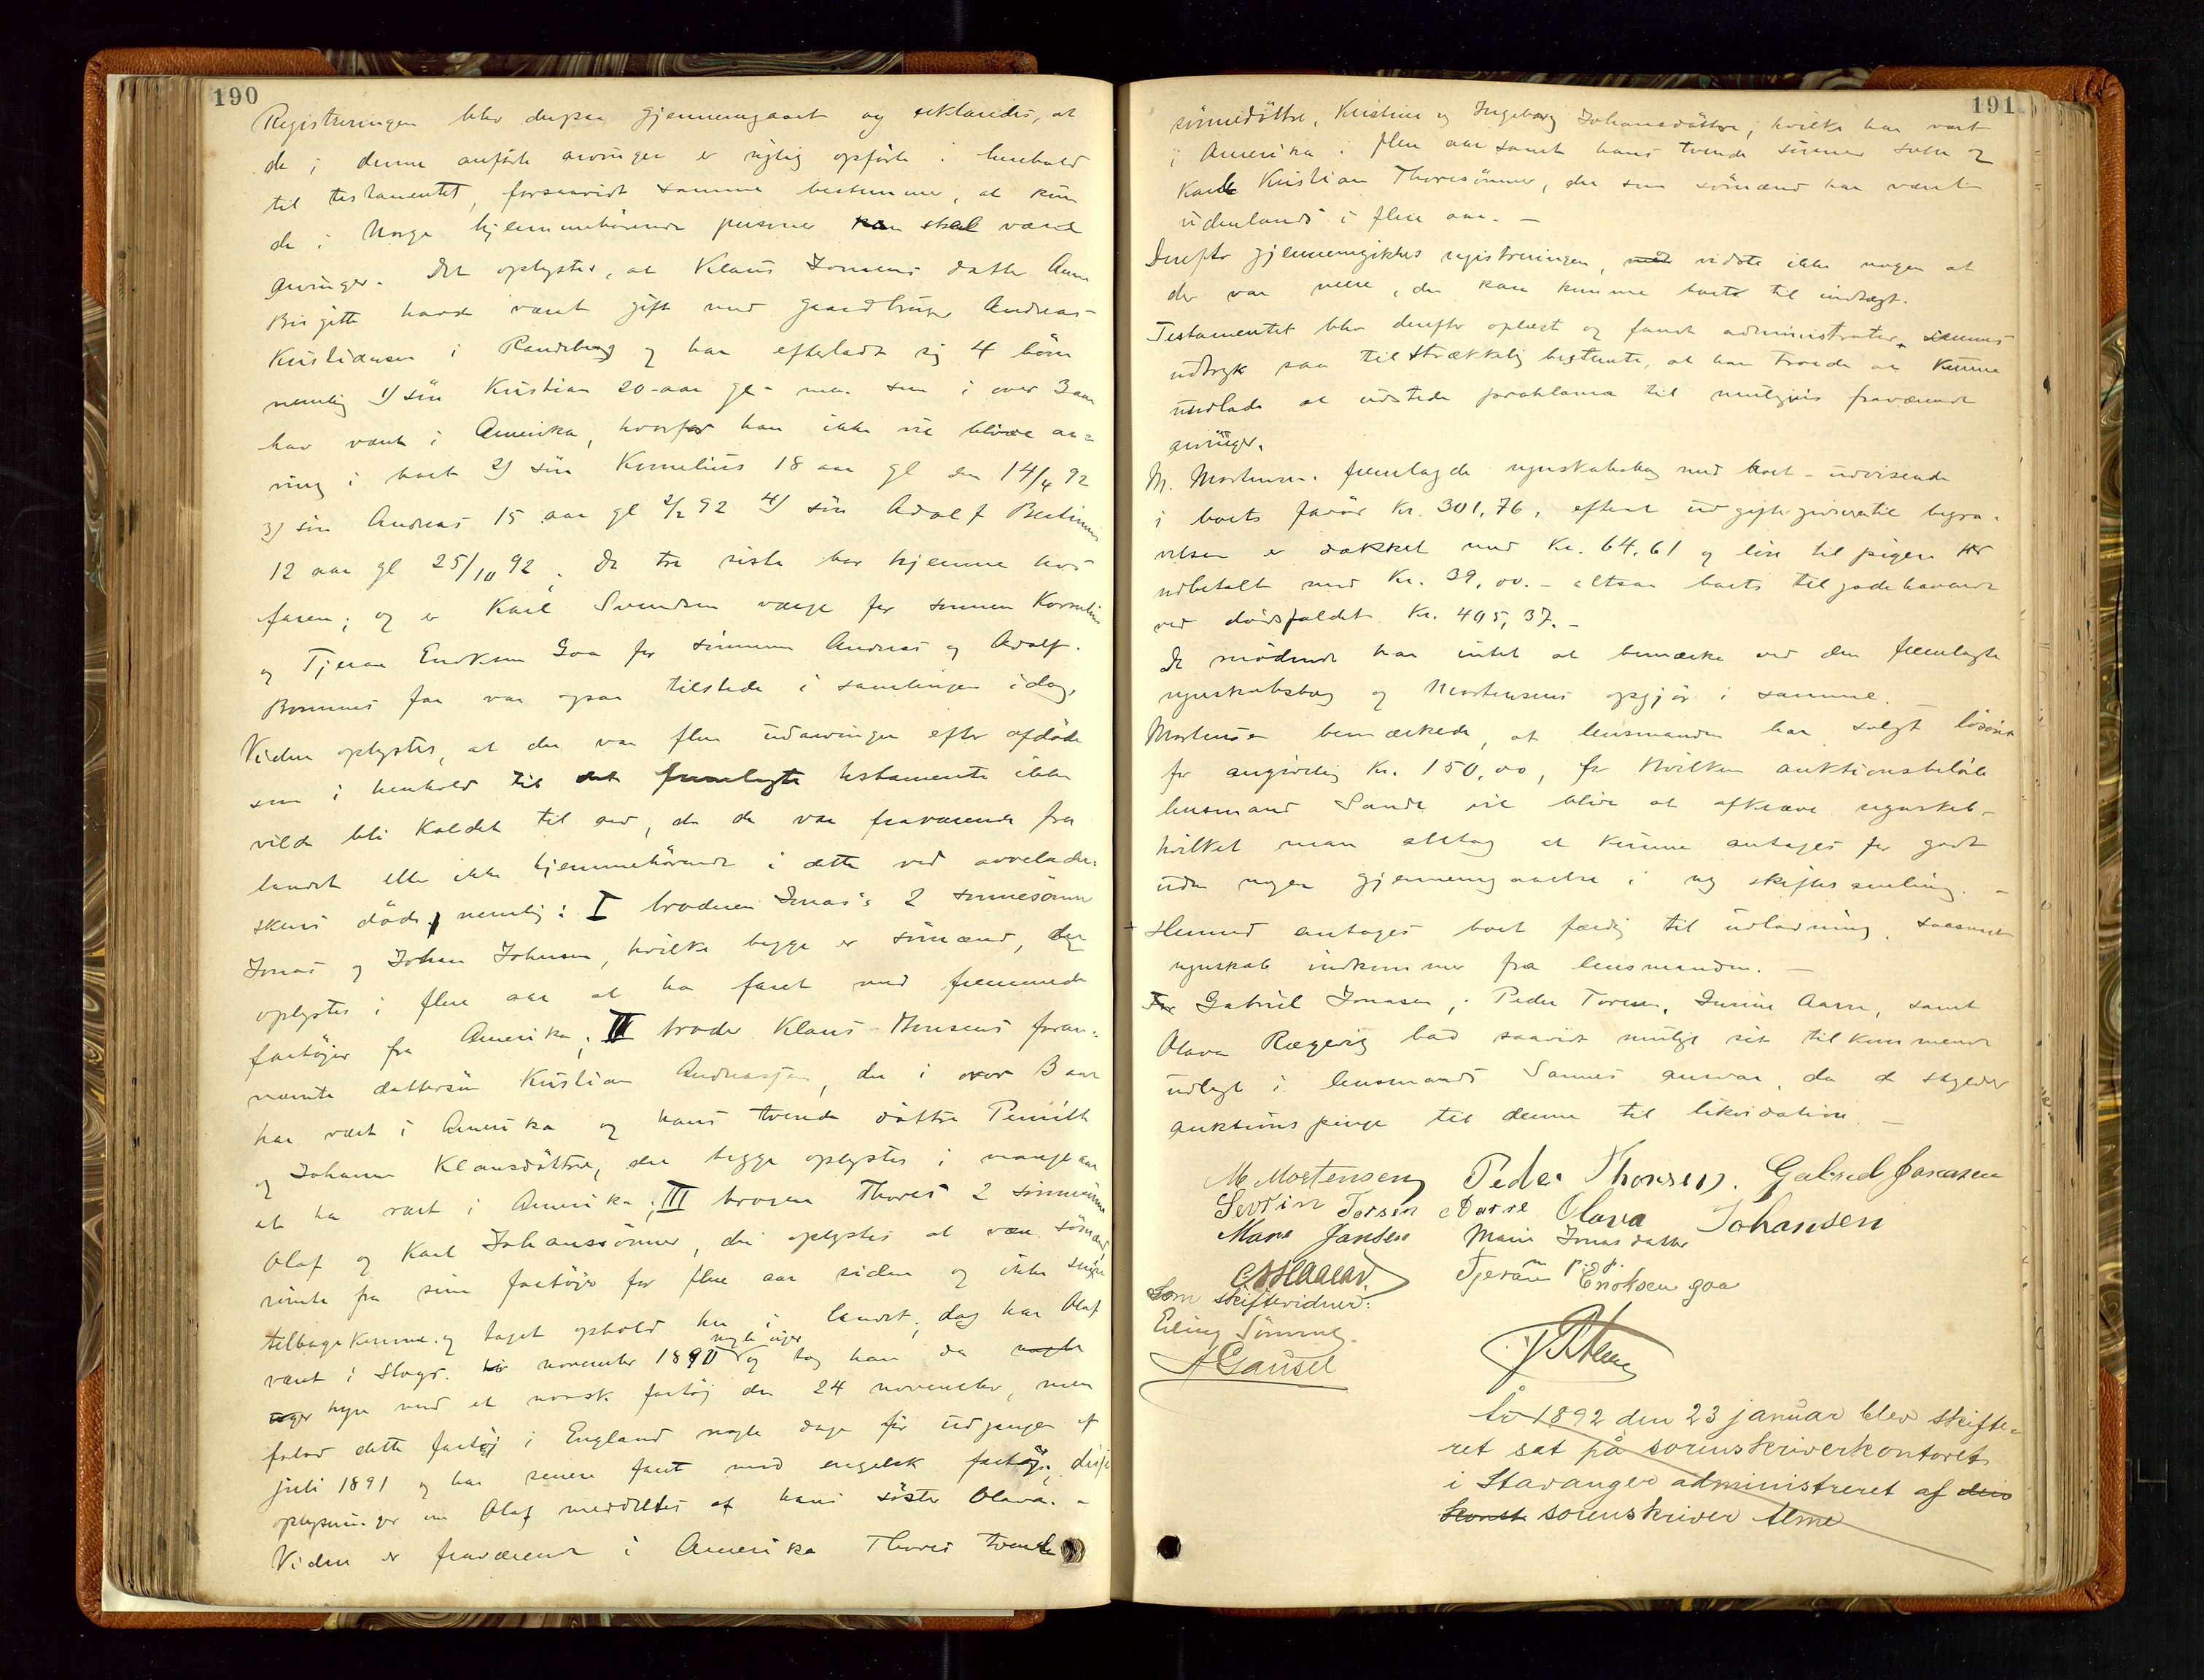 190
Registreringen blev derpaa gjennemgaaet og erklæredes, at
de i denne anførte arvinger er rigtig opførte i henhold
til testamentet, forsaavidt samme bestemmer, at kun
de i Norge hjemmehørende personer skal være
arvinger. Det oplystes, at Klaus Jonsens datter Anne
Birgitte havde været gift med gaardbruger Andreas
Kristiansen i Randeberg og har efterladt sig 4 børn
nemlig 1) søn Kristian 20 aar gl - men som i over 3 aar
har været i Amerika, hvorfor han ikke vil blive ar=
ving i boet 2) søn Kornelius 18 aar gl den 14/4 92
3) søn Andreas 15 aar gl 2/2 92 4) søn Adolf Bertinius
12 aar gl 25/10 92. De tre siste har hjemme hos
faren; og er Karl Svendsen værge for sønnen Kornelius
og Tjeran Eriksen Goa for sønnerne Andreas og Adolf.
Børnenes far var ogsaa tilstede i samlingen idag.
Videre oplystes, at der var flere udarvinger efter afdøde
som i henhold til det fremlagte testamente ikke
vilde bli kaldet til arv, da de var fraværende fra
landet eller ikke hjemmehørende i dette ved arvelade=
skens død, nemlig: I broderen Jonas's 2 sønnesønner
Jonas og Johan Johnsen, hvilke begge er sømænd, der
oplystes i flere aar at ha faret med fremmede
fartøjer fra Amerika; II broder Klaus Monsens foran=
nævnte dattersøn Kristian Andreassen, der i over 3 aar
har vært i Amerika og hans tvende døttre Pernille
og Johanne Klausdøttre, der begge oplystes i mange aar
at ha vært i Amerika; III broren Thores 2 sønnesønner
Olaf og Karl Johanssønner, der oplystes at være sømænd
rømte fra sine fartøjer for flere aar siden og ikke senere
tilbagekomne og taget ophold her i landet; dog har Olaf
været i Stavgr. november 1890 nogle uger og tog han da
hyre med et norsk fartøj den 24 november, men
forlod dette fartøj i England nogle dage før udgangen af
juli 1891 og har senere faret med engelsk fartøj; disse
oplysninger om Olaf meddeltes af hans søster Olava. -
Videre er fraværende i Amerika Thores tvende
191
sønnedøttre, Kristine og Ingeborg Johansdøttre, hvilke har vært
i Amerika i flere aar samt hans tvende sønner og
Karl Kristian Thoresønner, der som sømænd har været
udenlands i flere aar. -
Derefter gjennemgikkes registreringen, vidste ikke nogen at
der var mere, der kan komme boets til indtægt.
Testamentet blev derefter oplæst og fandt administrator dennes
udtryk saa tilstrækkelig bestemte, at han troede at kunne
undlade at udstede proklama til muligvis fraværende
arvinger.
M. Mortensen fremlagde regnskabsbog med boet - udvisende
i boets favør Kr. 301,76, efterat udgifter til begra=
velsen er dækket med Kr. 64,61 og løn til pigen
udbetalt med Kr. 39,00. - altsaa boets tilgodehavende
ved dødsfaldet Kr. 405,37. -
De mødende har intet at bemærke ved den fremlagte
regnskabsbog og Mortensens opgjør i samme.
Mortensen bemærkede, at lensmanden har solgt løsøre
for angivelig Kr. 150,00, for hvilken auktionsbeløb
lensmand Sande vil blive at afkræve regnskab -
hvilket man antog at kunne antages for godt
uden nogen gjennemgaaelse i ny skiftesamling. -
Hermed antages boet færdig til udlodning, saasnart
regnskab indkommer fra lensmanden. -
Gabriel Jonasen, Peder Torsen, Aarre, samt
Olava Rægevig bad saavidt muligt sit tilkommende
udlagt i lensmands ansvar, da de skylder
auktionspenge til denne til likvidation. -
M Mortensen Peder Thorsen. Gabriel Jonasen
Sevrin Torsen Aarre Olava Johansen
Mons Jansen Marie Jonasdatter
m. p. p.
Tjeran Eriksen goa
Som skiftevidner:
Eling Sømme.
A Gausel
År 1892 den 23 januar blev skifte=
ret sat på sorenskriverkontoret
i Stavanger administreret af den
konst. sorenskriver Alme